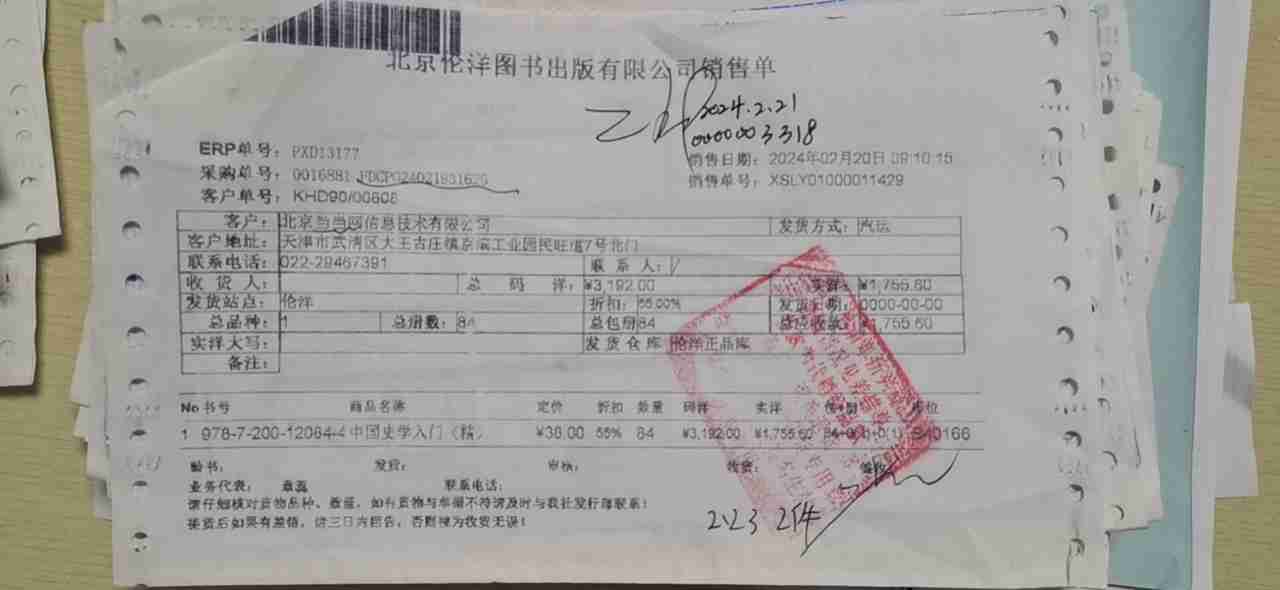 北京伦洋图书出版有限公司销售单
2024.2.21
0000003318
ERP单号: PXD13177
销售日期: 2024年02月20日 09:10:15
采购单号: 0016881
销售单号: XSLY01000011429
客户单号: KHD90/00608
客户: 北京当当网信息技术有限公司 发货方式: 汽运
客户地址: 天津市武清区大王古庄镇京滨工业园民旺道7号北门
联系电话: 022-29467391 联系人:
收货人: 总码洋: ¥3,192.00 实洋: ¥1,755.60
发货站点: 伦洋 折扣: 55.00% 发货日期: 0000-00-00
总品种: 1 总册数: 84 总包册84 总应收款: ¥1,755.60
实洋大写: 发货仓库 伦洋正品库
备注:
No 书号 商品名称 定价 折扣 数量 码洋 实洋 库位
1 978-7-200-12084-4 中国史学入门（精） ¥38.00 55% 84 ¥3,192.00 ¥1,755.60 S40166
验书: 发货: 审核: 收货: 签收
业务代表: 章磊 联系电话:
请仔细核对货物品种、数量，如有货物与单据不符请及时与我社发行部联系!
接货后如果有差错，请三日内回告，否则视为收货无误!